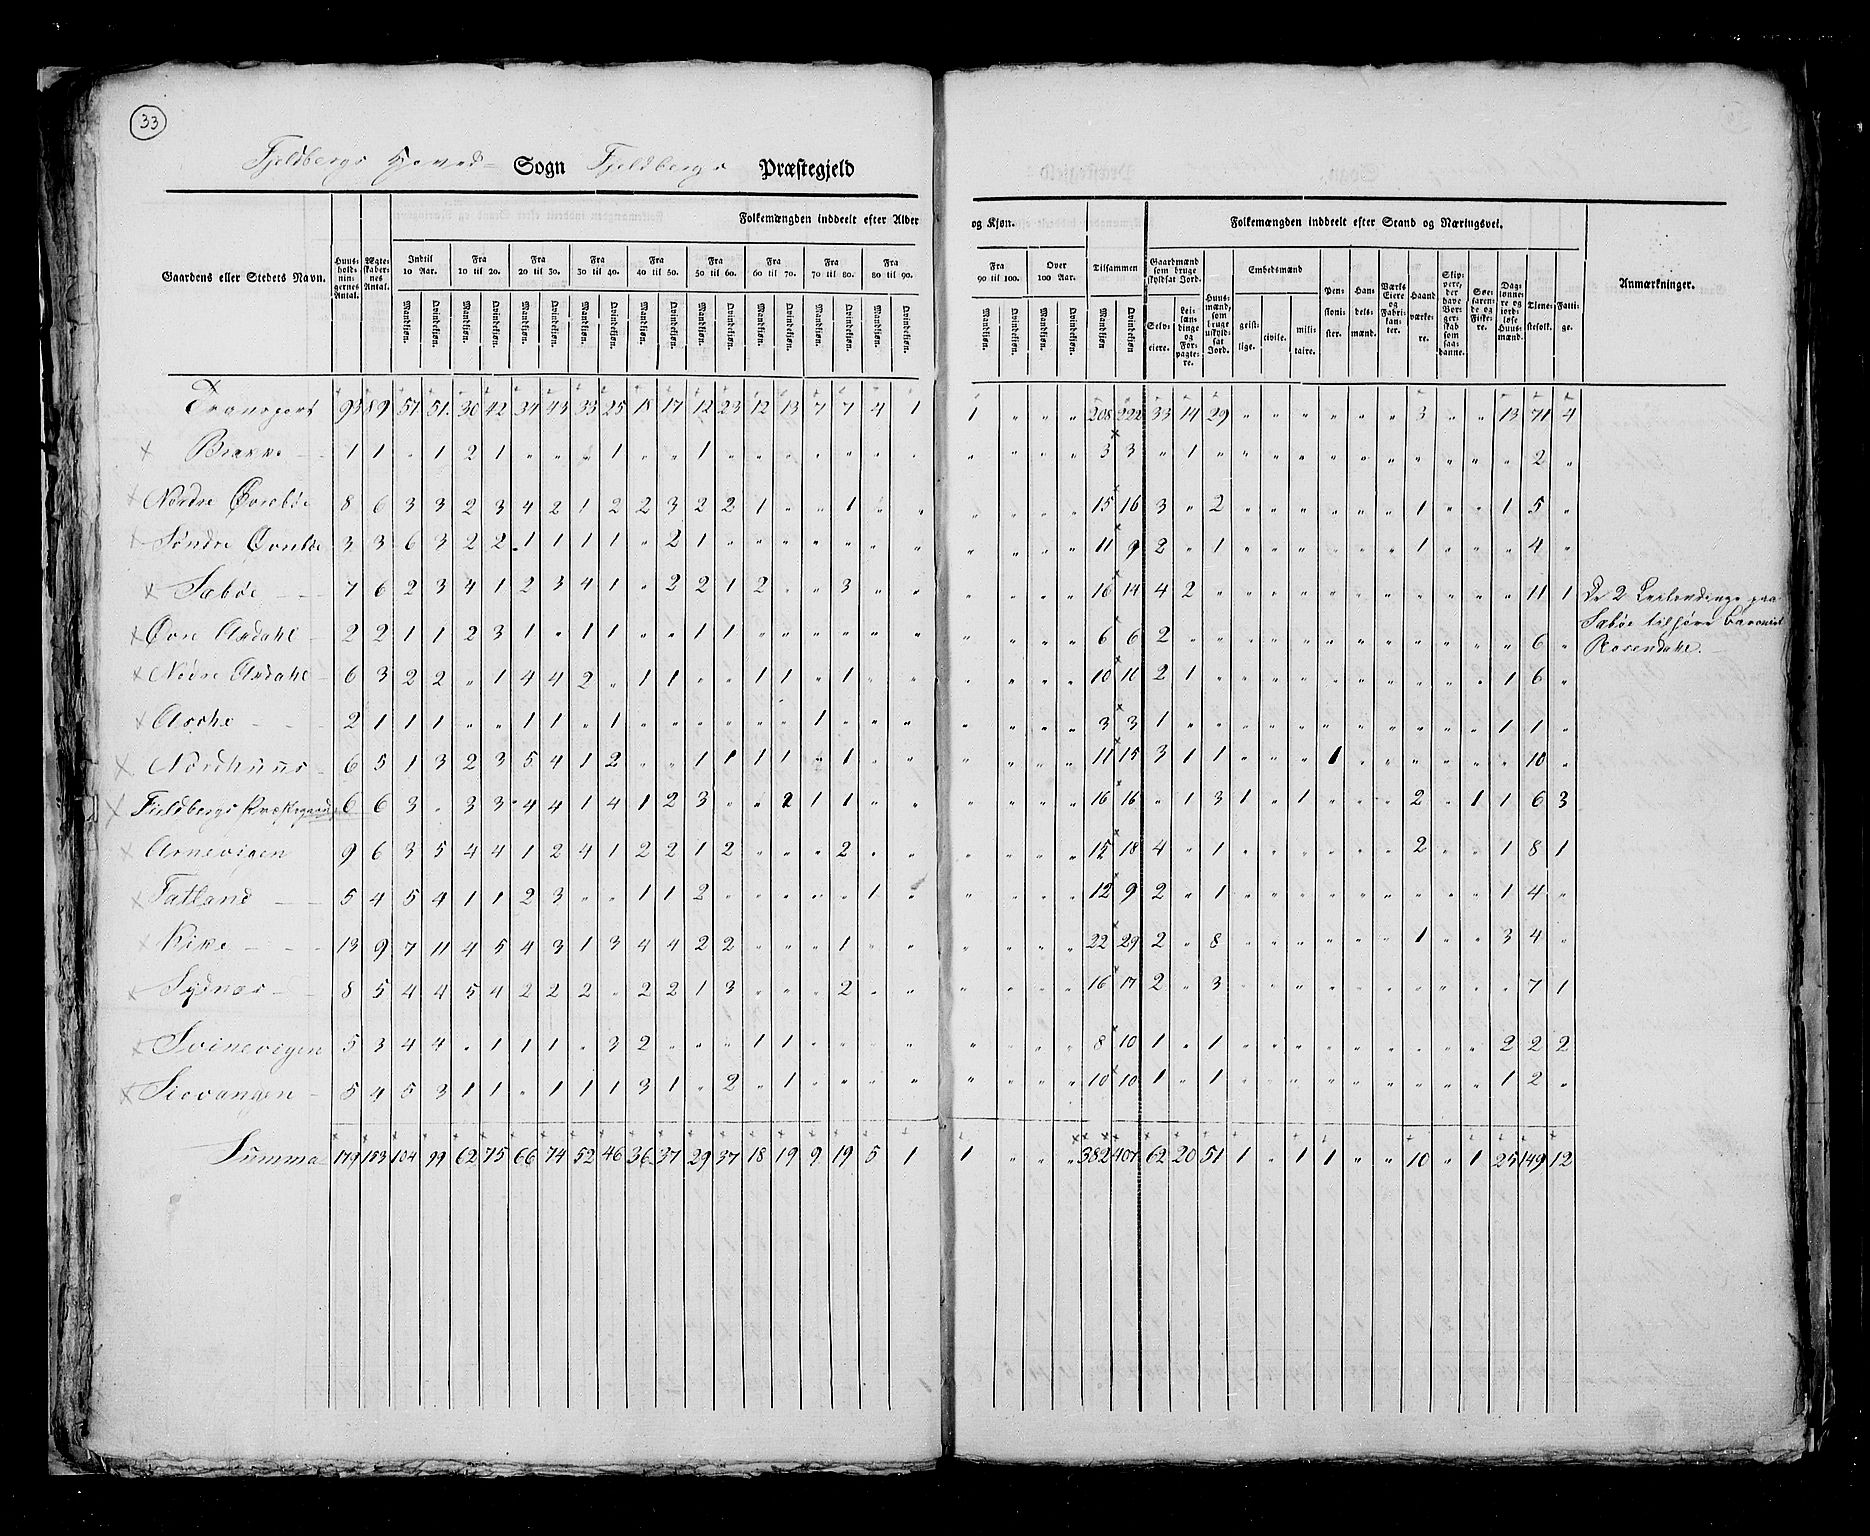 33
Fjeldbergs Hoved- Sogn Fjeldbergs Præstegjeld
Folkemængden inddeelt efter Alder og Kjøn. Folkemængden inddeelt efter Stand og Næringsvei.
Gaardens eller Stedets Navn. Huus-holdnin-gernes Antal. Ægte-skaber-nes Antal. Indtil 10 Aar. Fra 10 til 20. Fra 20 til 30. Fra 30 til 40. Fra 40 til 50. Fra 50 til 60. Fra 60 til 70. Fra 70 til 80. Fra 80 til 90. Fra 90 til 100. Over 100 Aar. Tilsammen Gaardmænd som bruge skyldsat Jord. Huus-mænd, som bruge uskyld-sat Jord. Embedsmænd Pen-sioni-ster. Han-dels-mænd. Værks Eiere og Fabri-kan-ter. Haand værke-re. Skip-pere, der have Bor-ger-skab som saa-danne. Søe-faren-de og Fiske-re. Dag-lønne-re og jord-løse Huus-mænd. Tiene-stefolk. Fatti-ge. Anmærkninger.
Mandkjøn. Qvindekjøn. Mandkjøn. Qvindekjøn. Mandkjøn. Qvindekjøn. Mandkjøn. Qvindekjøn. Mandkjøn. Qvindekjøn. Mandkjøn. Qvindekjøn. Mandkjøn. Qvindekjøn. Mandkjøn. Qvindekjøn. Mandkjøn. Qvindekjøn. Mandkjøn. Qvindekjøn. Mandkjøn. Qvindekjøn. Mandkjøn Qvindekjøn Selv-eiere. Lei-læn-dinge og For-pagte-re. geist-lige. civile. mili-taire.
Transport 93 89 57 51 30 42 34 43 33 25 18 17 12 23 12 13 7 7 4 1 1 " " " 208 222 33 14 29 " " " " " " 3 " " 13 71 4
Brekke 1 1 " 1 2 1 " " " 1 " " 1 " " " " " " " " " " " 3 3 " 1 " " " " " " " " " " " 2 "
Nordre Øvrebøe 8 6 3 3 2 3 4 2 1 2 2 3 2 2 1 " " 1 " " " " " " 15 16 3 " 2 " " " " " " 1 " " 1 5 "
Søndre Øvrebøe 3 3 6 3 2 2 1 1 1 1 " 2 1 " " " " " " " " " " " 11 9 2 " 1 " " " " " " 1 " " " 4 "
Sæbøe 7 6 2 3 4 1 2 3 4 1 " 2 2 1 2 " " 3 " " " " " " 16 14 4 2 " " " " " " " " " " " 11 1 De 2 Leilendinge paa
Øvre Axdahl 2 2 1 1 2 3 1 " 1 1 " " 1 1 " " " " " " " " " " 6 6 2 " " " " " " " " " " " " 6 " Sæbøe tilhøre Baroniet
Nedre Axdahl 6 3 2 2 " 1 4 4 2 " 1 1 " " 1 1 " 1 " " " " " " 10 10 2 1 " " " " " " " " " " 1 6 " Rosendahl.
Aske 2 1 1 1 " " 1 1 " 1 " " " " " " 1 " " " " " " " 3 3 1 " " " " " " " " " " " 1 1 "
Nordhuus 6 5 1 3 2 3 5 4 1 2 " " 1 1 1 1 " 1 " " " " " " 11 15 3 1 1 " " " 1 " " " " " " 10 "
Fieldbergs Præstegaard 6 6 3 " 3 3 4 4 1 4 1 2 3 " " 2 1 1 " " " " " " 16 16 " 1 3 1 " 1 " " " 2 " 1 1 6 3
Arnevigen 9 6 3 5 4 4 1 2 4 1 2 2 1 2 " " " 2 " " " " " " 15 18 4 " 1 " " " " " " 2 " " 1 8 1
Fatland 5 4 5 4 1 1 2 3 " " 1 1 2 " " " " " 1 " " " " " 12 9 2 " 1 " " " " " " " " " 1 4 "
Eike 13 9 7 11 4 5 4 3 1 3 4 4 2 2 " " " 1 " " " " " " 22 29 2 " 8 " " " " " " 1 " " 3 4 "
Sydnæs 8 5 4 4 5 4 2 2 2 " 2 2 1 3 " " " 2 " " " " " " 16 17 2 " 3 " " " " " " " " " " 7 1
Svinevigen 5 3 4 4 " 1 1 1 " 3 2 " " " 1 1 " " " " " " " " 8 10 1 " 1 " " " " " " " " " 2 2 2
Siovangen 5 4 5 3 1 1 " 1 1 1 3 1 " 2 " 1 " " " " " " " " 10 10 1 " 1 " " " " " " " " " 1 2 "
Summa 179 153 104 99 62 75 66 74 52 46 36 37 29 37 18 19 9 19 5 1 1 " " " 382 407 62 20 51 1 " 1 1 " " 10 " 1 25 149 12